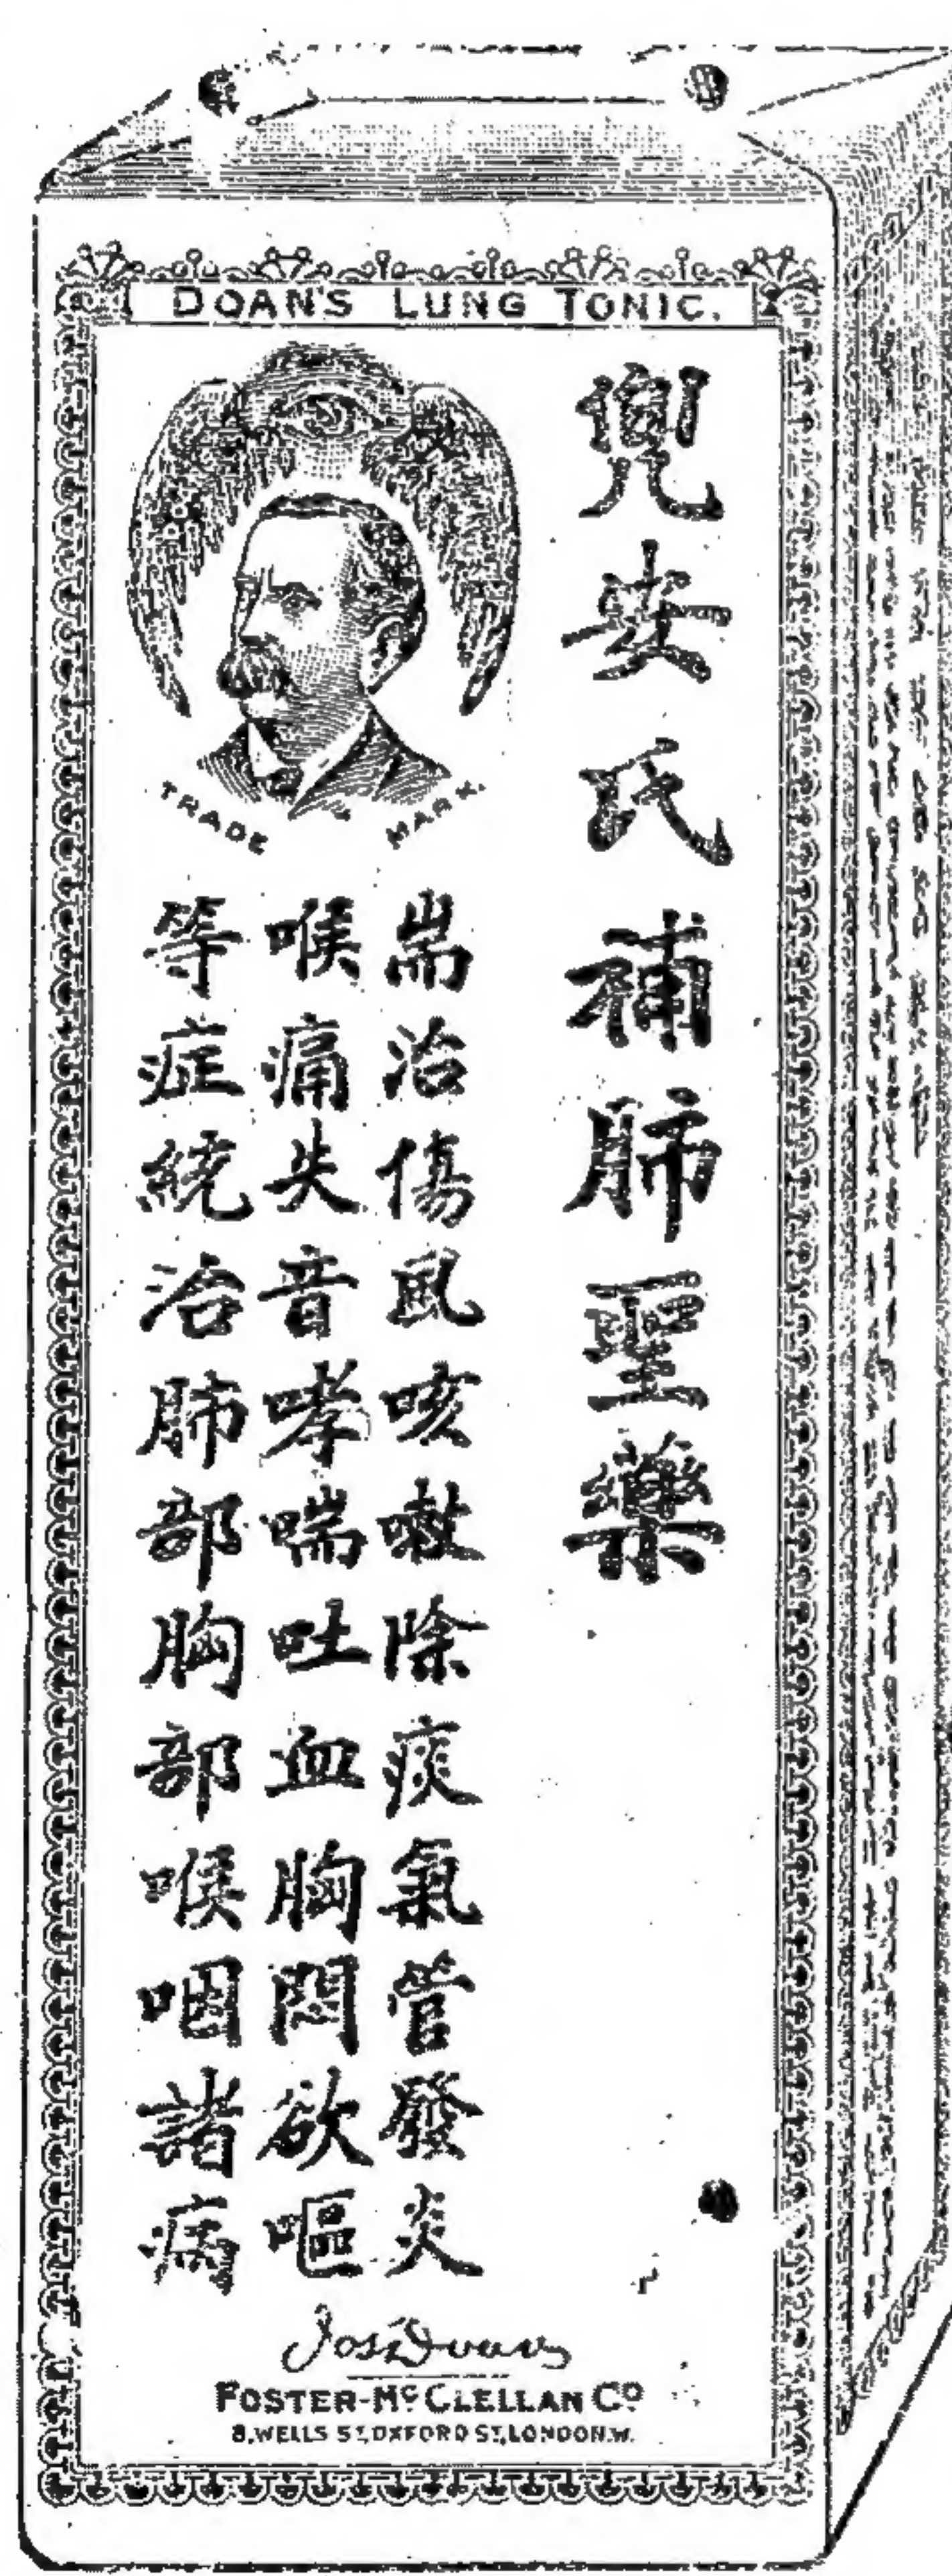 DOAN'S LUNG TONIC.
兜安氏補肺聖藥
TRADE MARK.
耑治傷風咳嗽除痰氣管發炎
喉痛失音哮喘吐血胸悶欲嘔
等症統治肺部胸部喉咽諸病
Jos Doan
FOSTER-McCLELLAN Co
8, WELLS ST, OXFORD ST, LONDON.W.